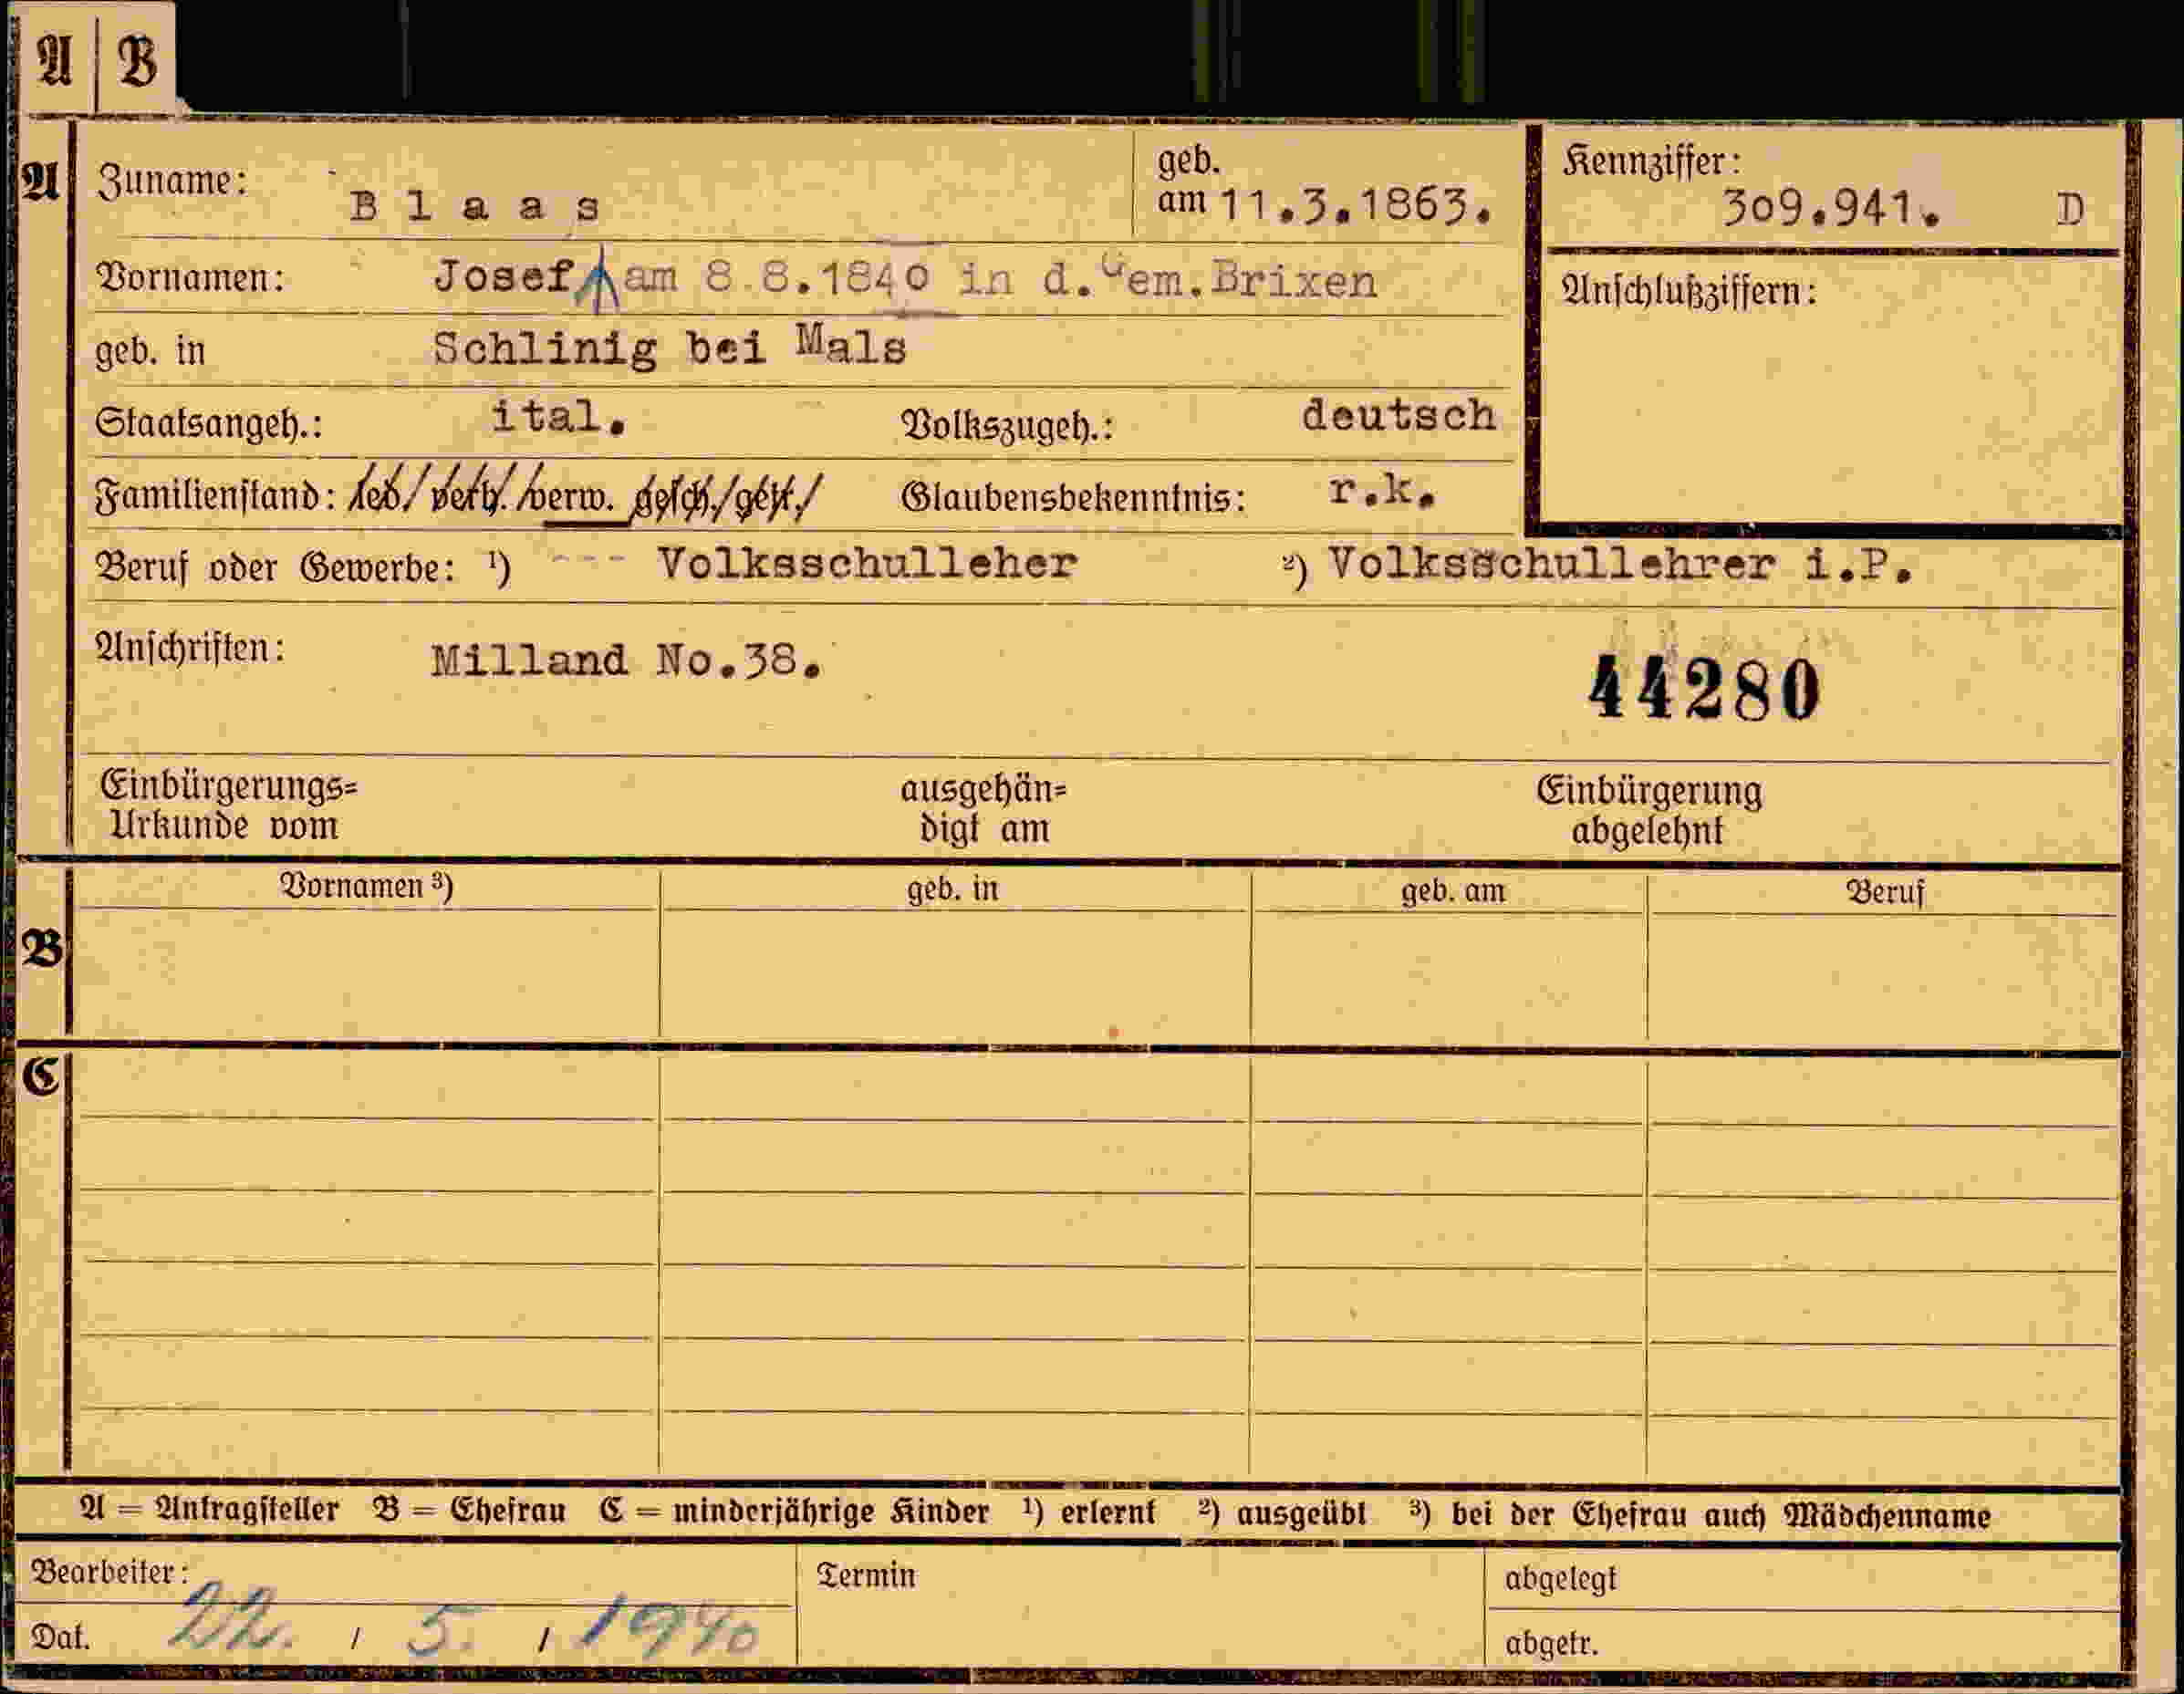 A | B
A
Zuname: B l a a s
geb. am 11.3.1863.
Kennziffer: 309.941. D
Vornamen: Josef am 8.8.1840 in d.Gem.Brixen
Anschlußziffern:
geb. in Schlinig bei Mals
Staatsangeh.: ital. Volkszugeh.: deutsch
Familienstand: led/verh./verw. gesch./getr./ Glaubensbekenntnis: r.k.
Beruf oder Gewerbe: ¹) --- Volksschulleher ²) Volksschullehrer i.P.
Anschriften: Milland No.38.
44280
Einbürgerungs= ausgehän= Einbürgerung
Urkunde vom digt am abgelehnt
Vornamen ³) geb. in geb. am Beruf
B
C
A = Antragsteller B = Ehefrau C = minderjährige Kinder ¹) erlernt ²) ausgeübt ³) bei der Ehefrau auch Mädchenname
Bearbeiter: Termin abgelegt
Dat. 22. / 5. / 1940 abgetr.